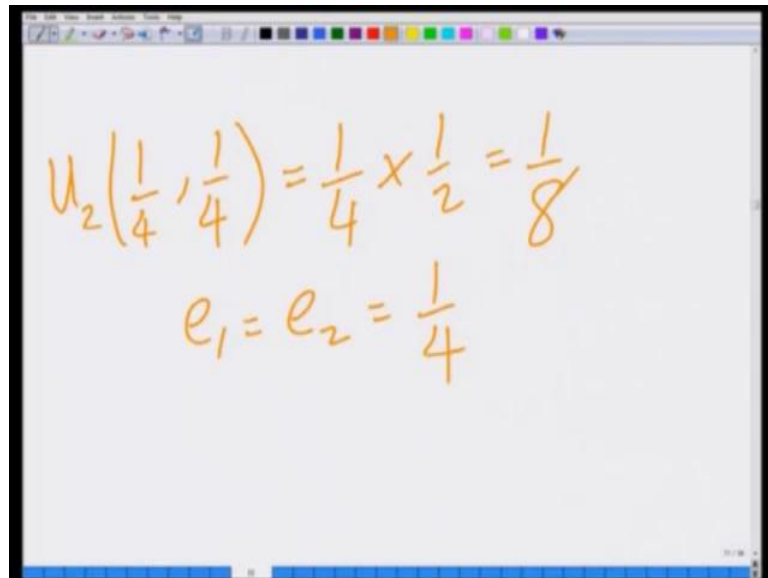 File Edit View Insert Actions Tools Help
B I
u₂(1/4, 1/4) = 1/4 × 1/2 = 1/8
e₁ = e₂ = 1/4